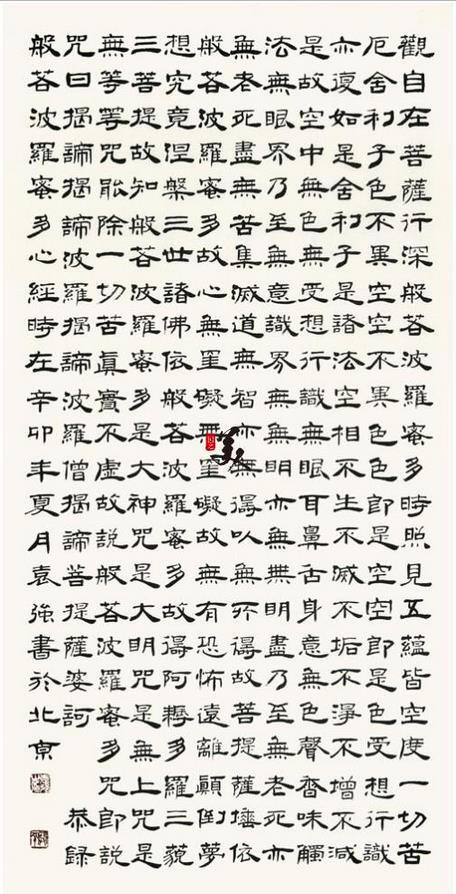 觀自在菩薩行深般若波羅蜜多時照見五蘊皆空度一切苦
厄舍利子色不異空空不異色色即是空空即是色受想行識
亦復如是舍利子是諸法空相不生不滅不垢不淨不增不減
是故空中無色無受想行識無眼耳鼻舌身意無色聲香味觸
法無眼界乃至無意識界無無明亦無無明盡乃至無老死亦
無老死盡無苦集滅道無智亦無得以無所得故菩提薩埵依
般若波羅蜜多故心無罣礙無罣礙故無有恐怖遠離顛倒夢
想究竟涅槃三世諸佛依般若波羅蜜多故得阿耨多羅三藐
三菩提故知般若波羅蜜多是大神咒是大明咒是無上咒是
無等等咒能除一切苦真實不虛故說般若波羅蜜多咒即說
咒曰揭諦揭諦波羅揭諦波羅僧揭諦菩提薩婆訶 恭録
般若波羅蜜多心經時在辛卯年夏月袁強書於北京
美